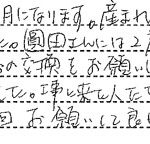 月になります。産まれ
た。圓田さんには2
の交換をお願いし
た。事し来て人たて
回お願いして良い